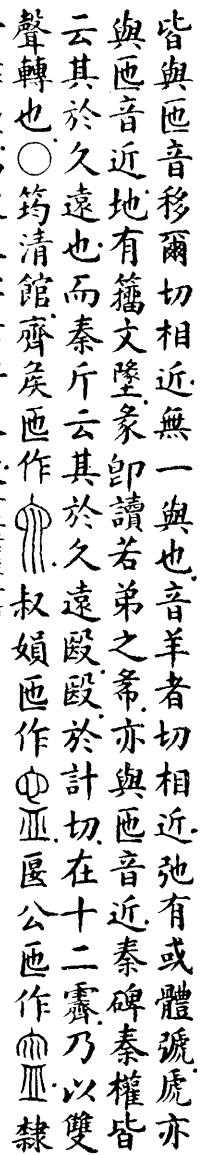 皆與匜音移爾切相近無一與也音羊者切相近弛有或體號虒亦
與匜音近地有籒文墬彖卽讀若弟之㣇亦與匜音近秦碑秦權皆
云其於久遠也而秦斤云其於久遠殹殹於計切在十二霽乃以雙
聲轉也○筠清館齊矦匜作叔娟匜作匽公匜作隸